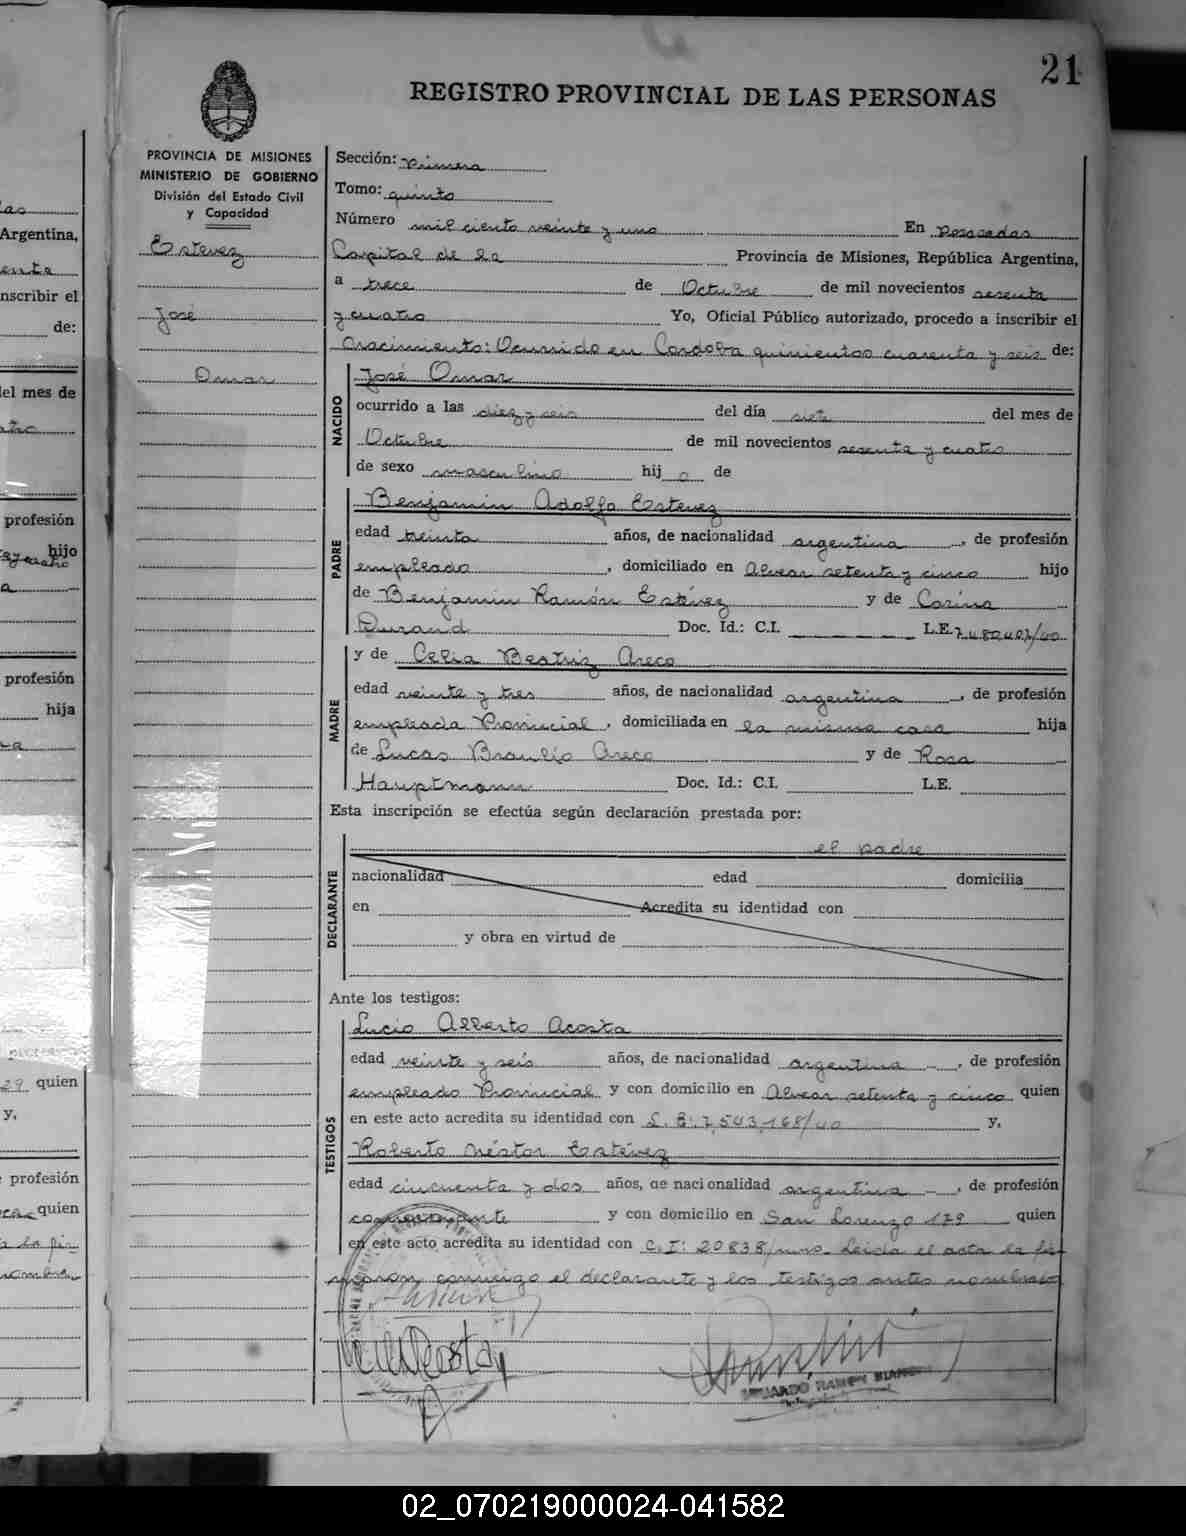 21
REGISTRO PROVINCIAL DE LAS PERSONAS
PROVINCIA DE MISIONES
MINISTERIO DE GOBIERNO
División del Estado Civil
y Capacidad
Estevez
José
Omar
Sección: Primera
Tomo: quinto
Número mil ciento veinte y uno En Posadas
Capital de la Provincia de Misiones, República Argentina,
a trece de Octubre de mil novecientos sesenta
y cuatro Yo, Oficial Público autorizado, procedo a inscribir el
Nacimiento: Ocurrido en Cordoba quinientos cuarenta y seis de:
NACIDO
José Omar
ocurrido a las diez y seis del día siete del mes de
Octubre de mil novecientos sesenta y cuatro
de sexo masculino hijo de
PADRE
Benjamin Adolfo Estevez
edad treinta años, de nacionalidad argentina, de profesión
empleado, domiciliado en Alvear setenta y cinco hijo
de Benjamin Ramón Estévez y de Corina
Durand Doc. Id.: C.I. L.E. 7.480.407/40
MADRE
y de Celia Beatriz Areco
edad veinte y tres años, de nacionalidad argentina, de profesión
empleada Provincial, domiciliada en la misma casa hija
de Lucas Braulio Areco y de Rosa
Hauptmann Doc. Id.: C.I. L.E.
Esta inscripción se efectúa según declaración prestada por:
el padre
DECLARANTE
nacionalidad edad domicilia
en Acredita su identidad con
y obra en virtud de
Ante los testigos:
TESTIGOS
Lucio Alberto Acosta
edad veinte y seis años, de nacionalidad argentina, de profesión
empleado Provincial y con domicilio en Alvear setenta y cinco quien
en este acto acredita su identidad con L. E: 7,543,168/40 y,
Roberto Néstor Estévez
edad cincuenta y dos años, de nacionalidad argentina, de profesión
comerciante y con domicilio en San Lorenzo 179 quien
en este acto acredita su identidad con C. I: 20838/mns. Leida el acta la fir
maron conmigo el declarante y los testigos antes nombrados
EDUARDO RAMON
02_070219000024-041582